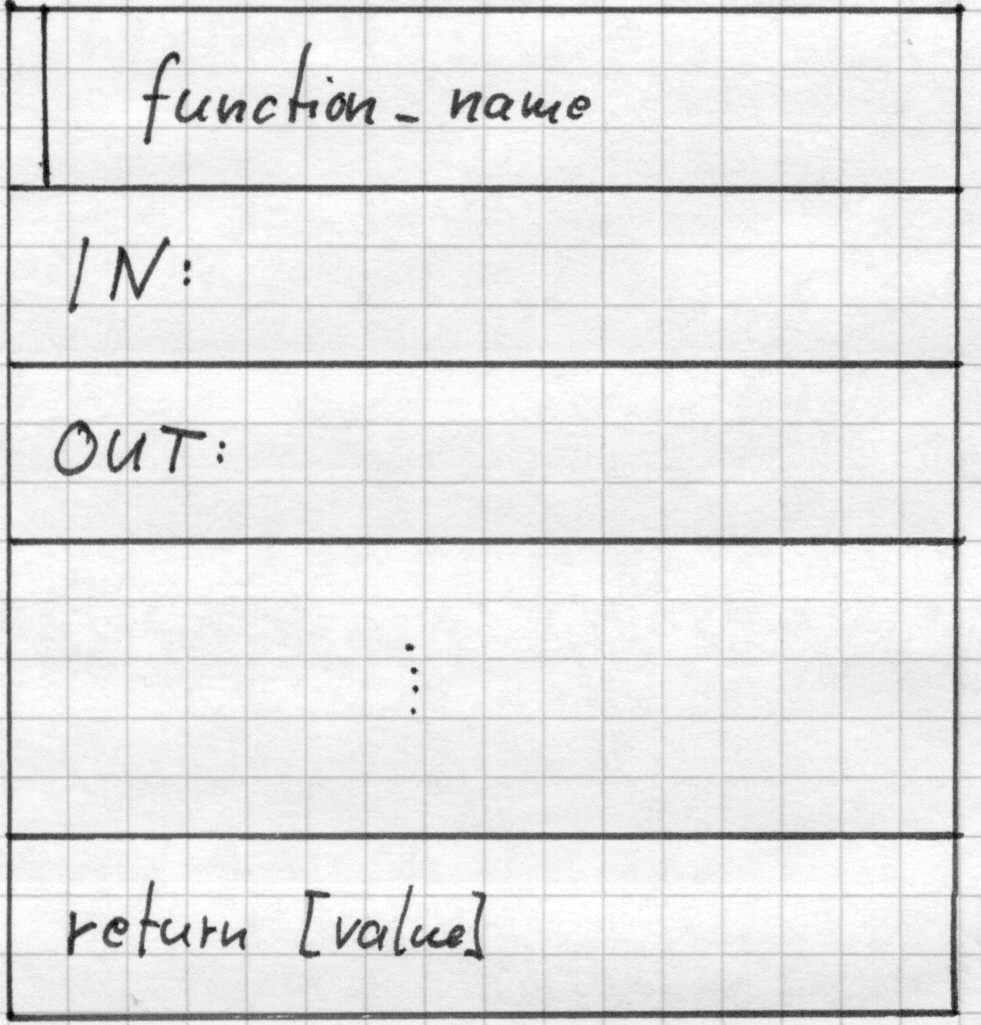 function_name
IN:
OUT:
⋮
return [value]